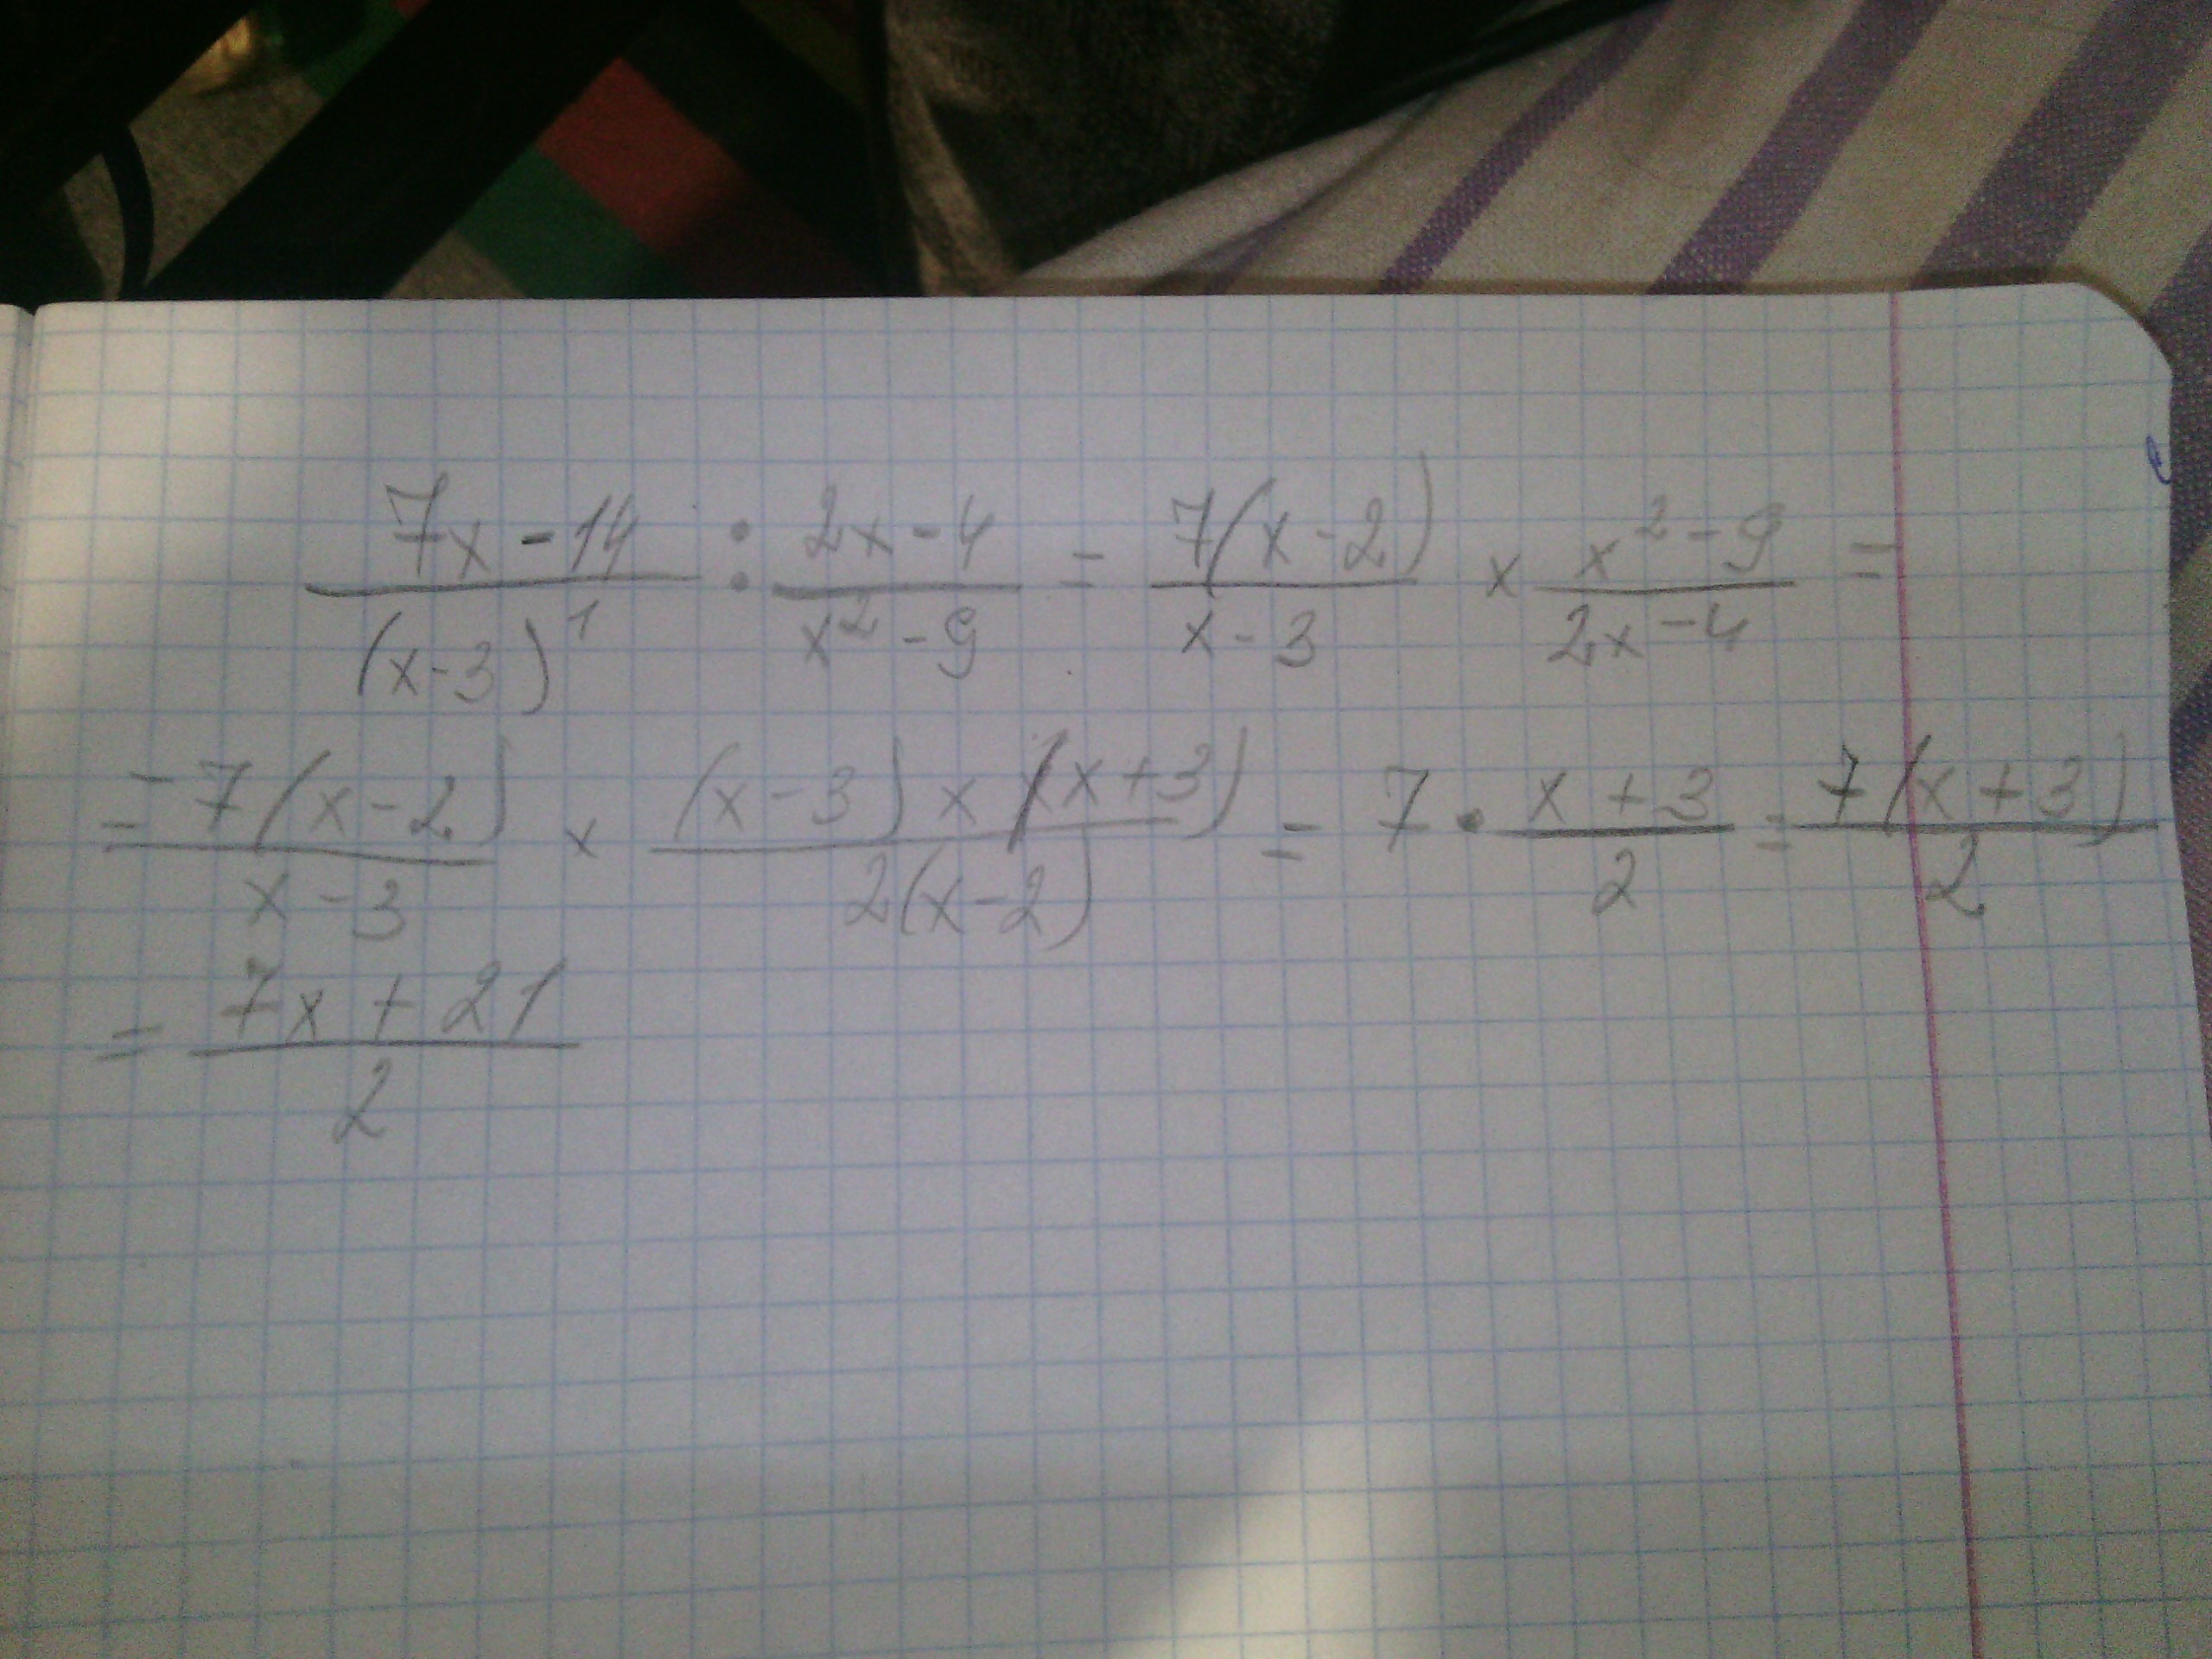 (7x-14)/(x-3)^1 : (2x-4)/(x²-9) = 7(x-2)/(x-3) × (x²-9)/(2x-4) =
= 7(x-2)/(x-3) × (x-3)×(x+3)/2(x-2) = 7 · (x+3)/2 = 7(x+3)/2
= (7x+21)/2